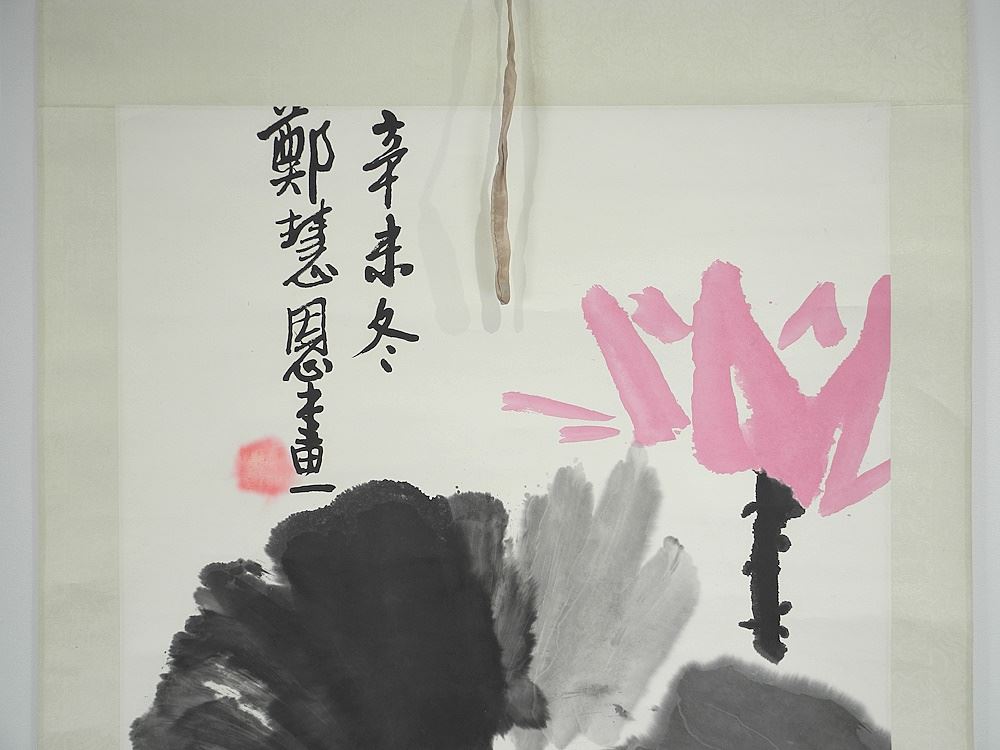 辛未冬
鄭慧恩畫